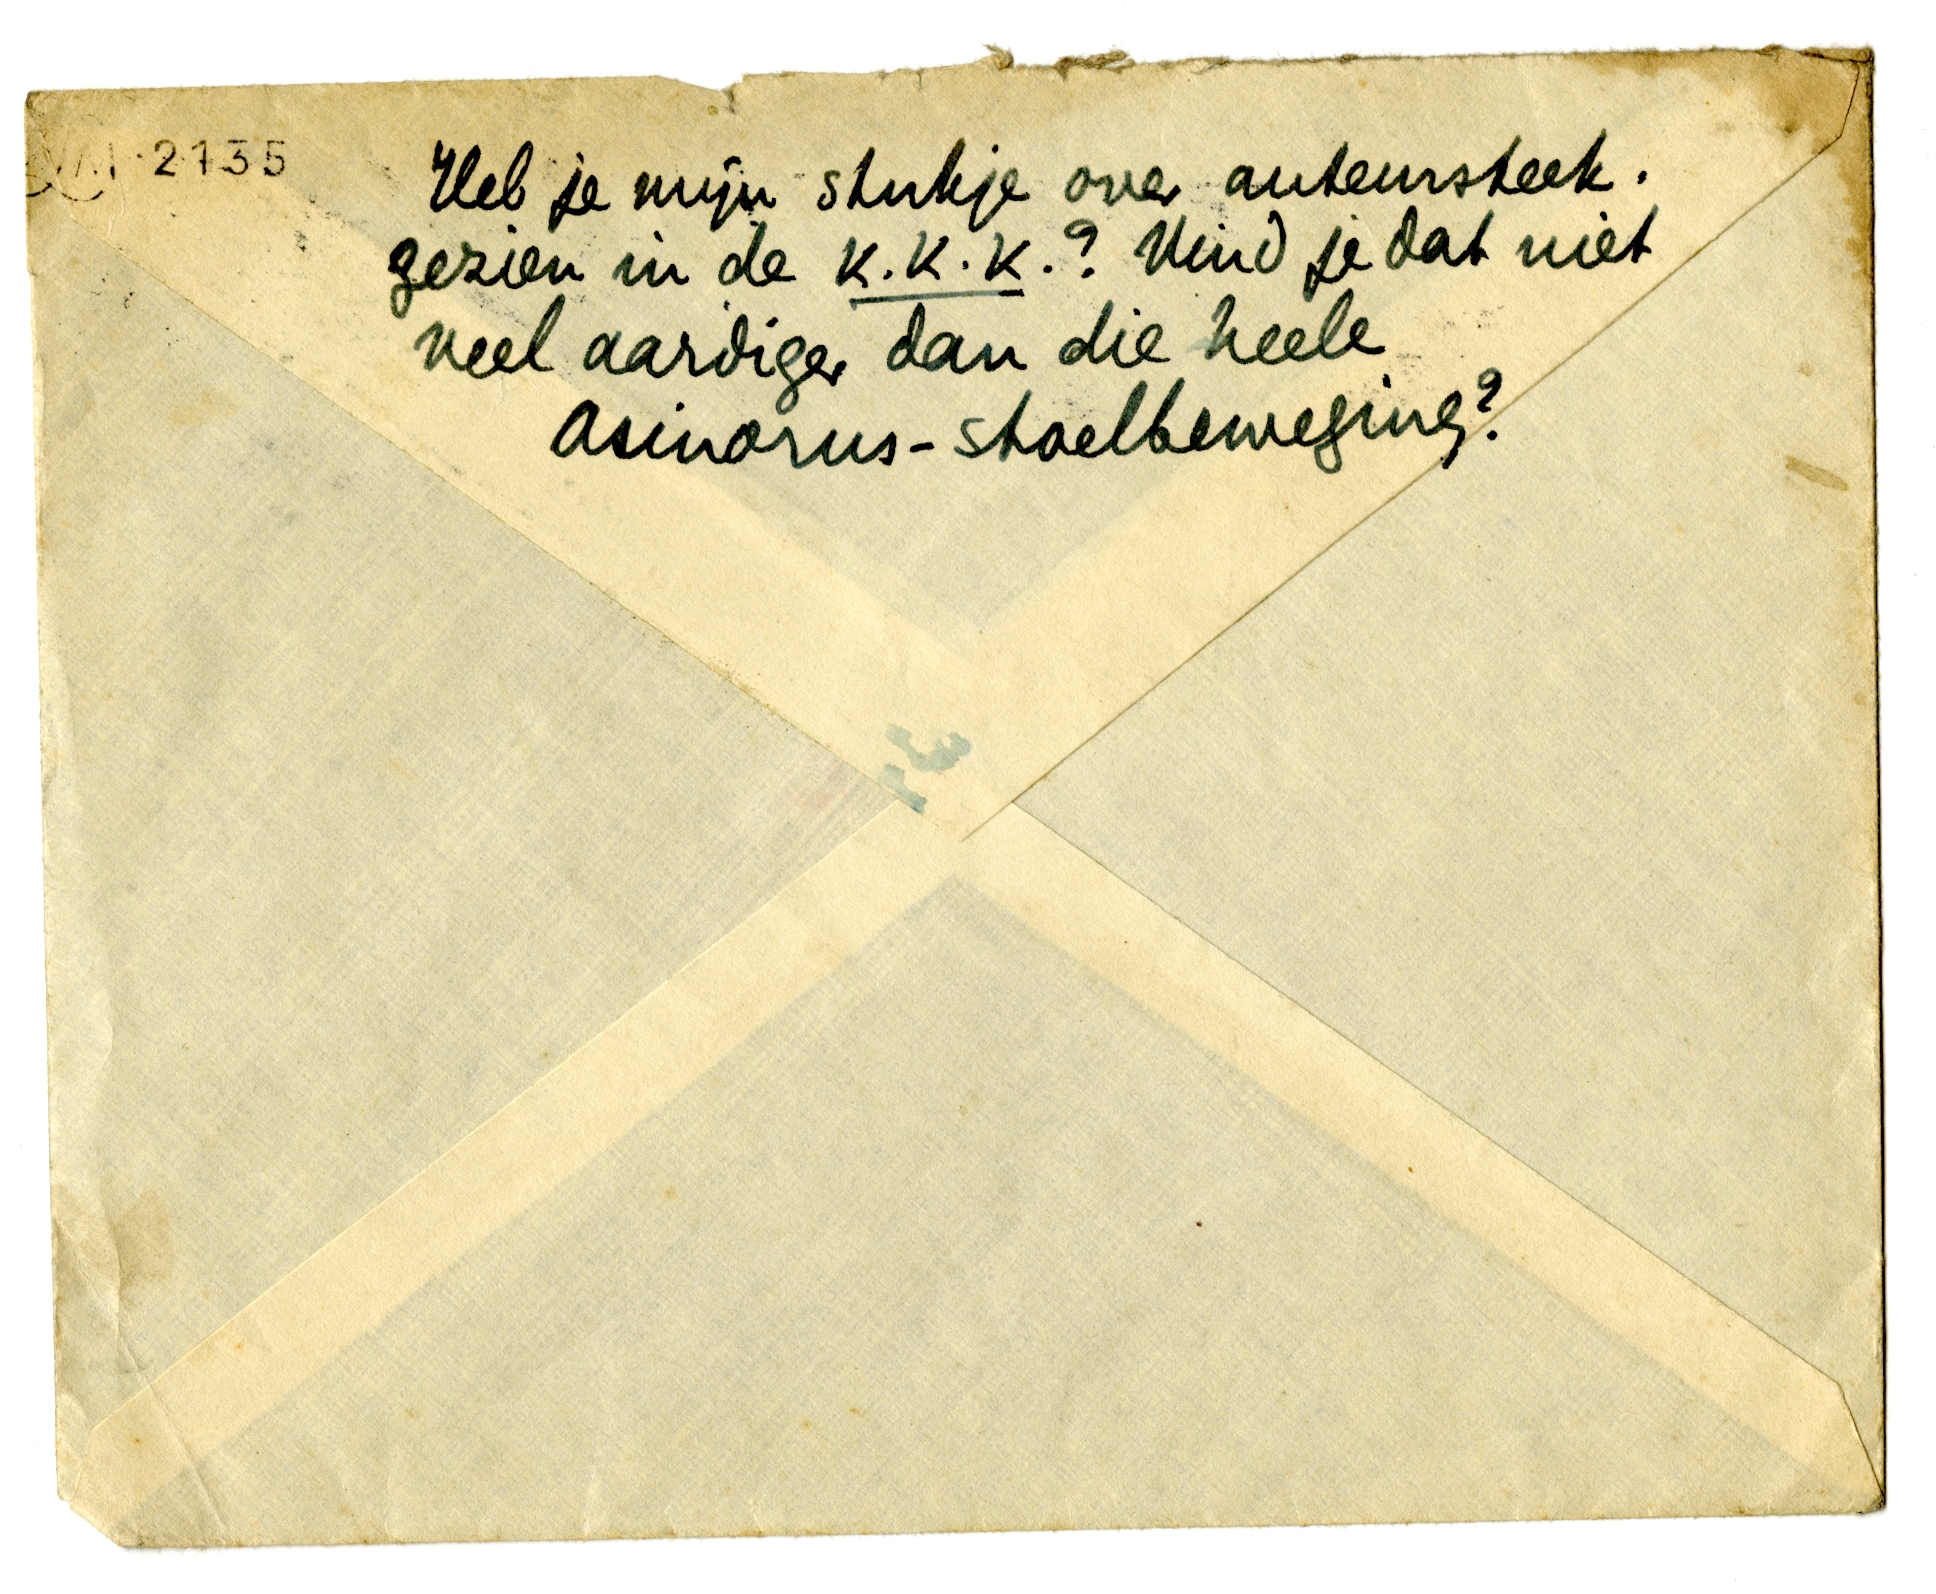 2135
Heb je mijn stukje over auteursteek.
gezien in de K.K.K.? Vind je dat niet
veel aardiger dan die heele
Asinorus-stoelbeweging?